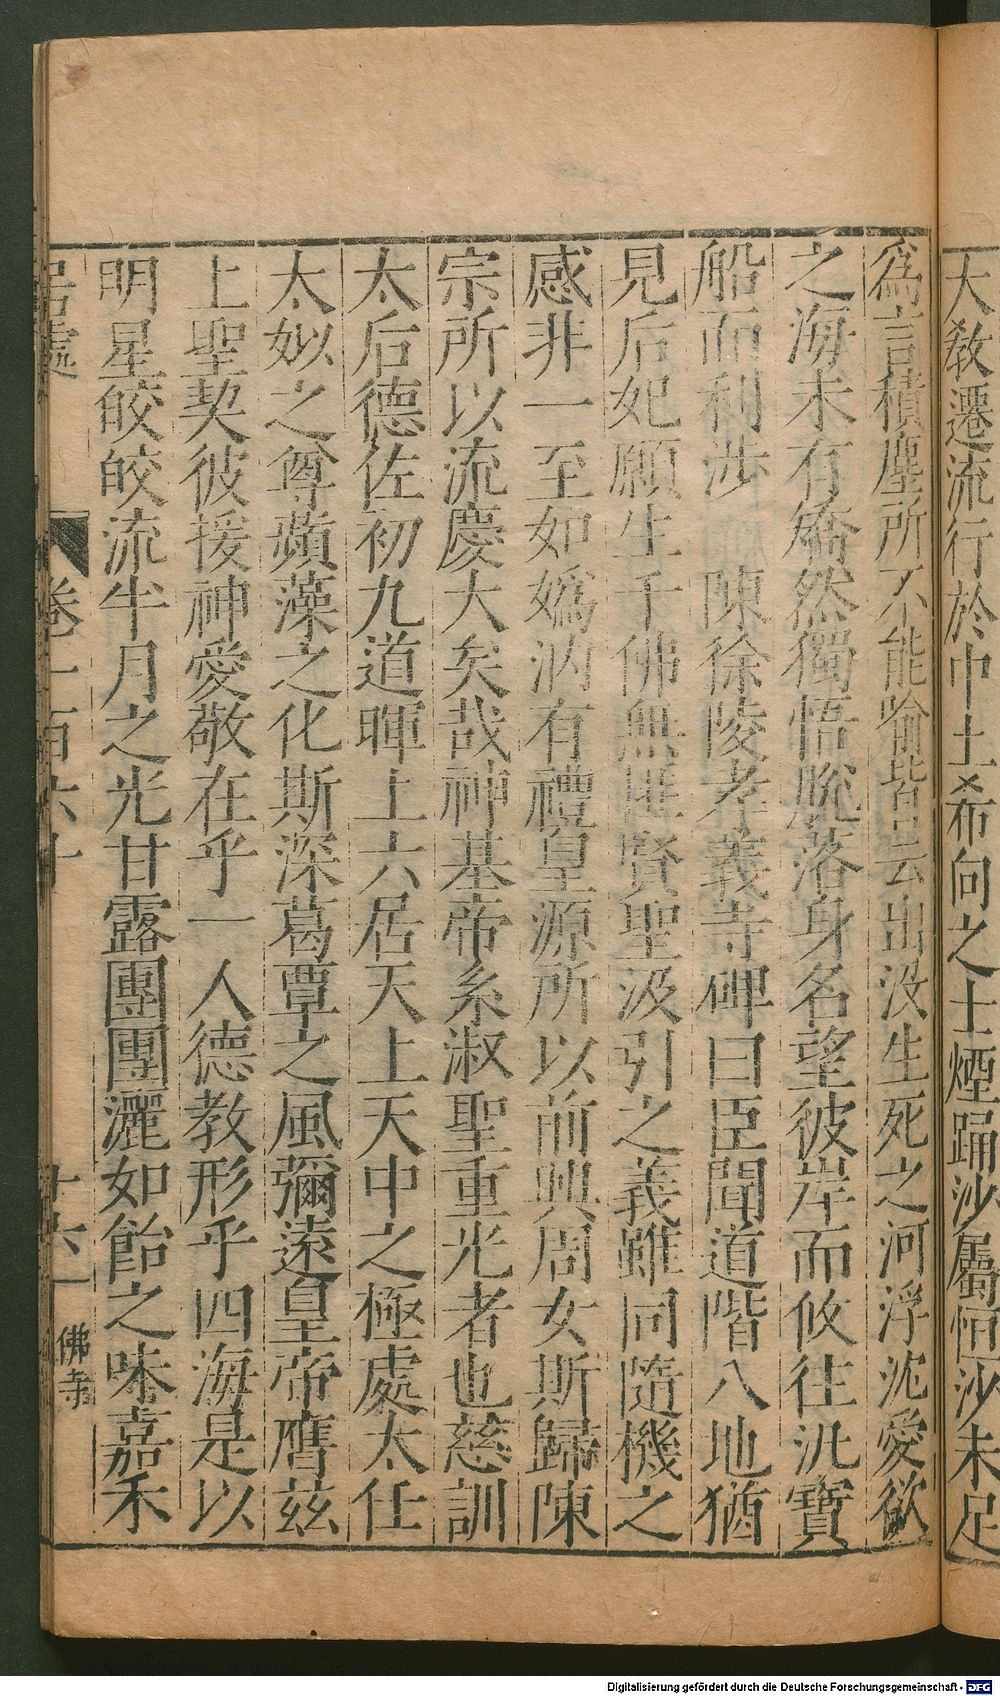 大敎遷流行於中土希向之士煙踊沙屬恒沙未足
爲言積塵所不能喻皆云出沒生死之河浮沈愛欲
之海未有矯然獨悟脫落身名望彼岸而攸往汎寶
船而利涉　陳徐陵孝義寺碑曰臣聞道階八地猶
見后妃願生千佛無匪賢聖汲引之義雖同隨機之
感非一至如嬀汭有禮皇源所以前興周女斯歸陳
宗所以流慶大矣哉神基帝系淑聖重光者也慈訓
太后德佐初九道暉上六居天上天中之極處太任
太姒之尊蘋藻之化斯深葛覃之風彌遠皇帝膺茲
上聖契彼援神愛敬在乎一人德教形乎四海是以
明星皎皎流半月之光甘露團團灑如飴之味嘉禾
居處　卷一百六十　十六　佛寺
Digitalisierung gefördert durch die Deutsche Forschungsgemeinschaft - DFG